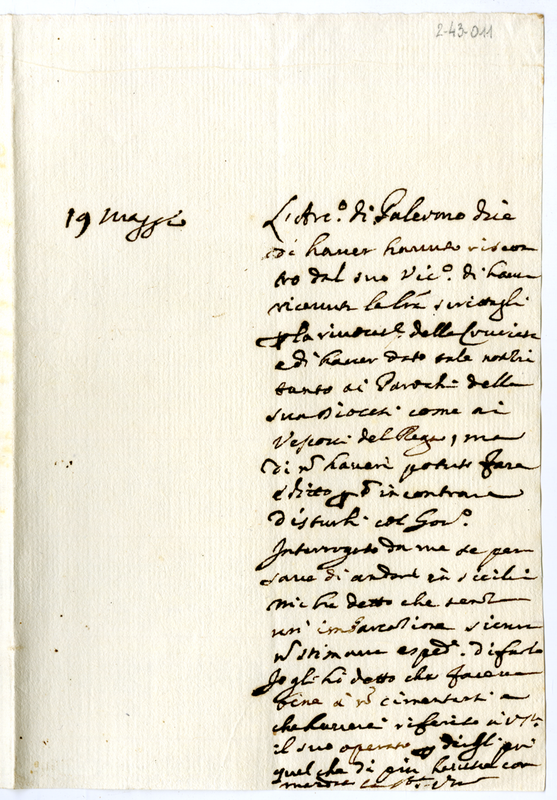 2-43-011
19 Maggio
L'Arc.o di Palermo dice
di haver havuto riscon
tro dal suo Vic.o di haver
ricevuta la lrā scrittagli
p la rivocat.e della Crociata
e di haver dato tale notitia
tanto ai Parochi della
sua Diocesi come ai
Vescovi del Regno, ma
di nō haver potuto fare
editto p nō incontrare
disturbi col Gov.o
Interrogato da me se pen
sava di andare in Sicilia
mi ha detto che
un' imbarcatione sicura
nō stimava esped.e di farlo
Io gli hò detto che faceva
bene à nō cimentarsi e
che haverei riferito à V.S.
il suo operato p
quel che di più havesse com